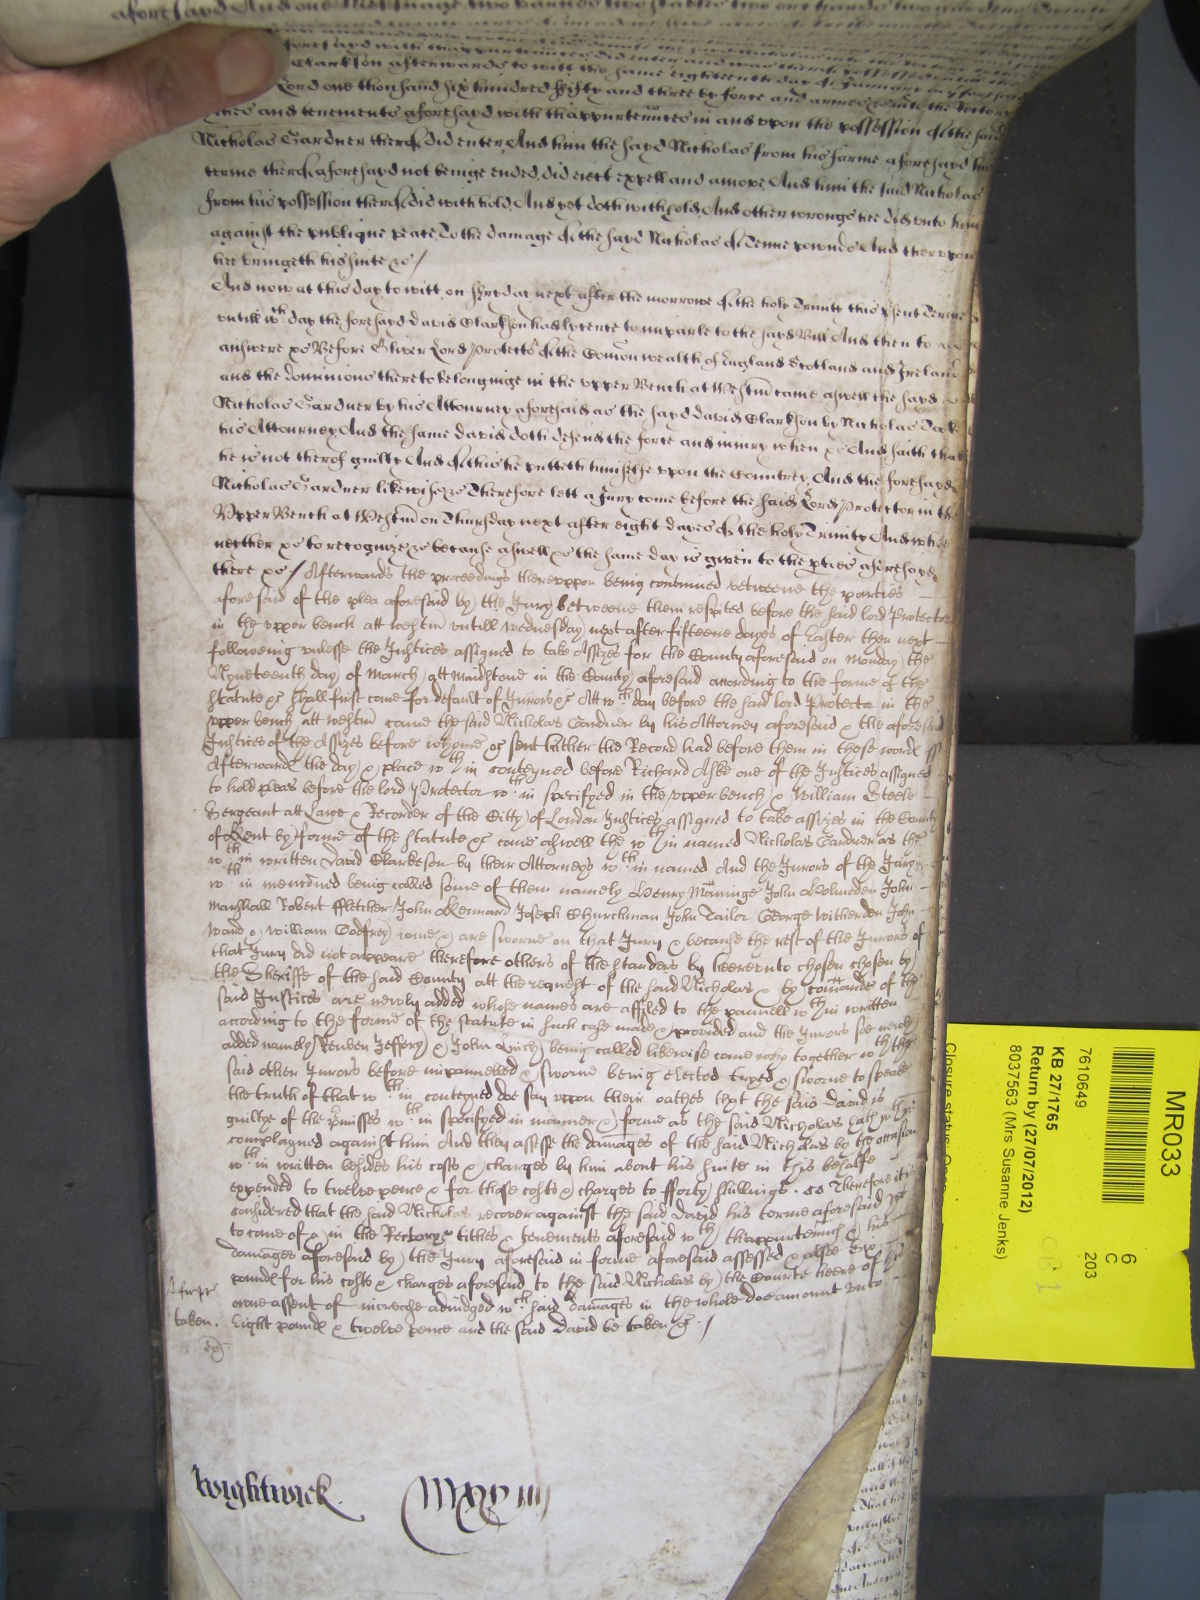 aforesayd And one Messuage two barnes two stables two orchards two gardens
aforesayd with thappurtenncs did enter and was thereof possessed
Clarkson afterwards to witt the same eighteenth day of January in y
Lord one thousand six hundred fifty and three by force and armes &c into the Rectory
tithes and tenements aforesayd with thappurtenncs in and vpon the possession of the said
Nicholas Gardner thereof did enter And him the sayd Nicholas from his farme aforesayd his
terme thereof aforesayd not beinge ended did eiect expell and amove And him the said Nicholas
from his possession thereof did with hold And yet doth withhold And other wrongs hee did vnto him
against the publique peace To the damage of the sayd Nicholas of Tenne pownds And thervpon
hee bringeth his suite &c /
And now at this day to witt on fryday next after the morrowe of the holy Trinity this psent Terme
vntill wch day the foresayd david Clarkson had lycence to imparle to the sayd Bill And then to
answere &c Before Oliver Lord Protector of the Comonwealth of England Scotland and Ireland
and the dominions thereto belonginge in the vpper Bench at Westm came aswell the sayd
Nicholas Gardner by his Attourney aforesaid as the sayd david Clarkson by Nicholas
his Attourney And the same david doth defend the force and iniury when &c And saith that
he is not therof guilty And of this he putteth himselfe vpon the Countrey And the foresayd
Nicholas Gardner likewise &c Therefore lett a Jury come before the said Lord Protector in the
Vpper Bench at Westm on Thursday next after eight dayes of the holy Trinity And who
neyther &c to recognize &c because aswell &c the same day is given to the pties aforesayd
there &c / Afterwards the proceedings therevppon being continued betweene the parties
aforesaid of the plea aforesaid by the Jury betweene them respited before the said lord Protector
in the vpper bench att westm vntill wednesday next after fifteene dayes of Easter then next
followeing vnlesse the Justices assigned to take Assizes for the County aforesaid on Monday the
Nyneteenth day of March att Maidstone in the County aforesaid according to the forme of the
statute &c shall first come for default of Jurors &c Att wch day before the said lord Protector in the
vpper bench att westm came the said Nicholas Gardner by his Attorney aforesaid & the aforesaid
Justices of the Assizes before whome &c sent hither the Record had before them in these words ss
Afterwards the day & place wthin conteyned before Richard Aske one of the Justices assigned
to hold pleas before the lord Protector wthin specifyed in the vpper bench & William Steele
Sergeant att Lawe & Recorder of the Citty of London Justices assigned to take assizes in the County
of Kent by forme of the statute &c came aswell the wthin named Nicholas Gardner as the
wthin written David Clarkeson by their Attorneys wthin named And the Jurors of the Jury
wthin mencōned being called some of them namely Henry Manninge John Holmeden John
Marshall Robert ffletcher John Kennard Joseph Churchman John Tailor George Witherden John
Ward & William Godfrey come & are sworne on that Jury & because the rest of the Jurors of
that Jury did not appeare therefore others of the standers by heerevnto chosen chosen by
the Sheriffe of the said County att the request of the said Nicholas & by comands of the
said Justices are newly added whose names are affiled to the pannell wthin written
according to the forme of the statute in such case made & provided and the Jurors soe newly
added namely Reuben Jeffery & John Linch being called likewise come who together wth the
said other Jurors before impannelled & sworne being elected tryed & sworne to speake
the truth of that wthin conteyned doe say vpon their oathes that the said David is
guiltye of the pmisses wthin specifyed in manner & forme as the said Nicholas hath wthin
complayned against him And they assesse the damages of the said Nicholas by the occasion
wthin written besides his costs & charges by him about his suite in this behalfe
expended to twelve pence & for those costs & charges to fforty shillings. &c Therefore it is
considered that the said Nicholas recover against the said david his terme aforesaid yet
to come of & in the Rectory tithes & tenements aforesaid wth thappurtenncs & his
damages aforesaid by the Jury aforesaid in forme aforesaid assessed & alsoe Six
pounds for his costs & charges aforesaid to the said Nicholas by the Courte heere of his
owne assent of increase adiudged wch said damages in the whole doe amount vnto
Eight pounds & twelve pence and the said david be taken &c. /
taken.
Wightwick
MR033
6
C
203
7610649
KB 27/1765
Return by (27/07/2012)
8037563 (Mrs Susanne Jenks)
Closure status: Open